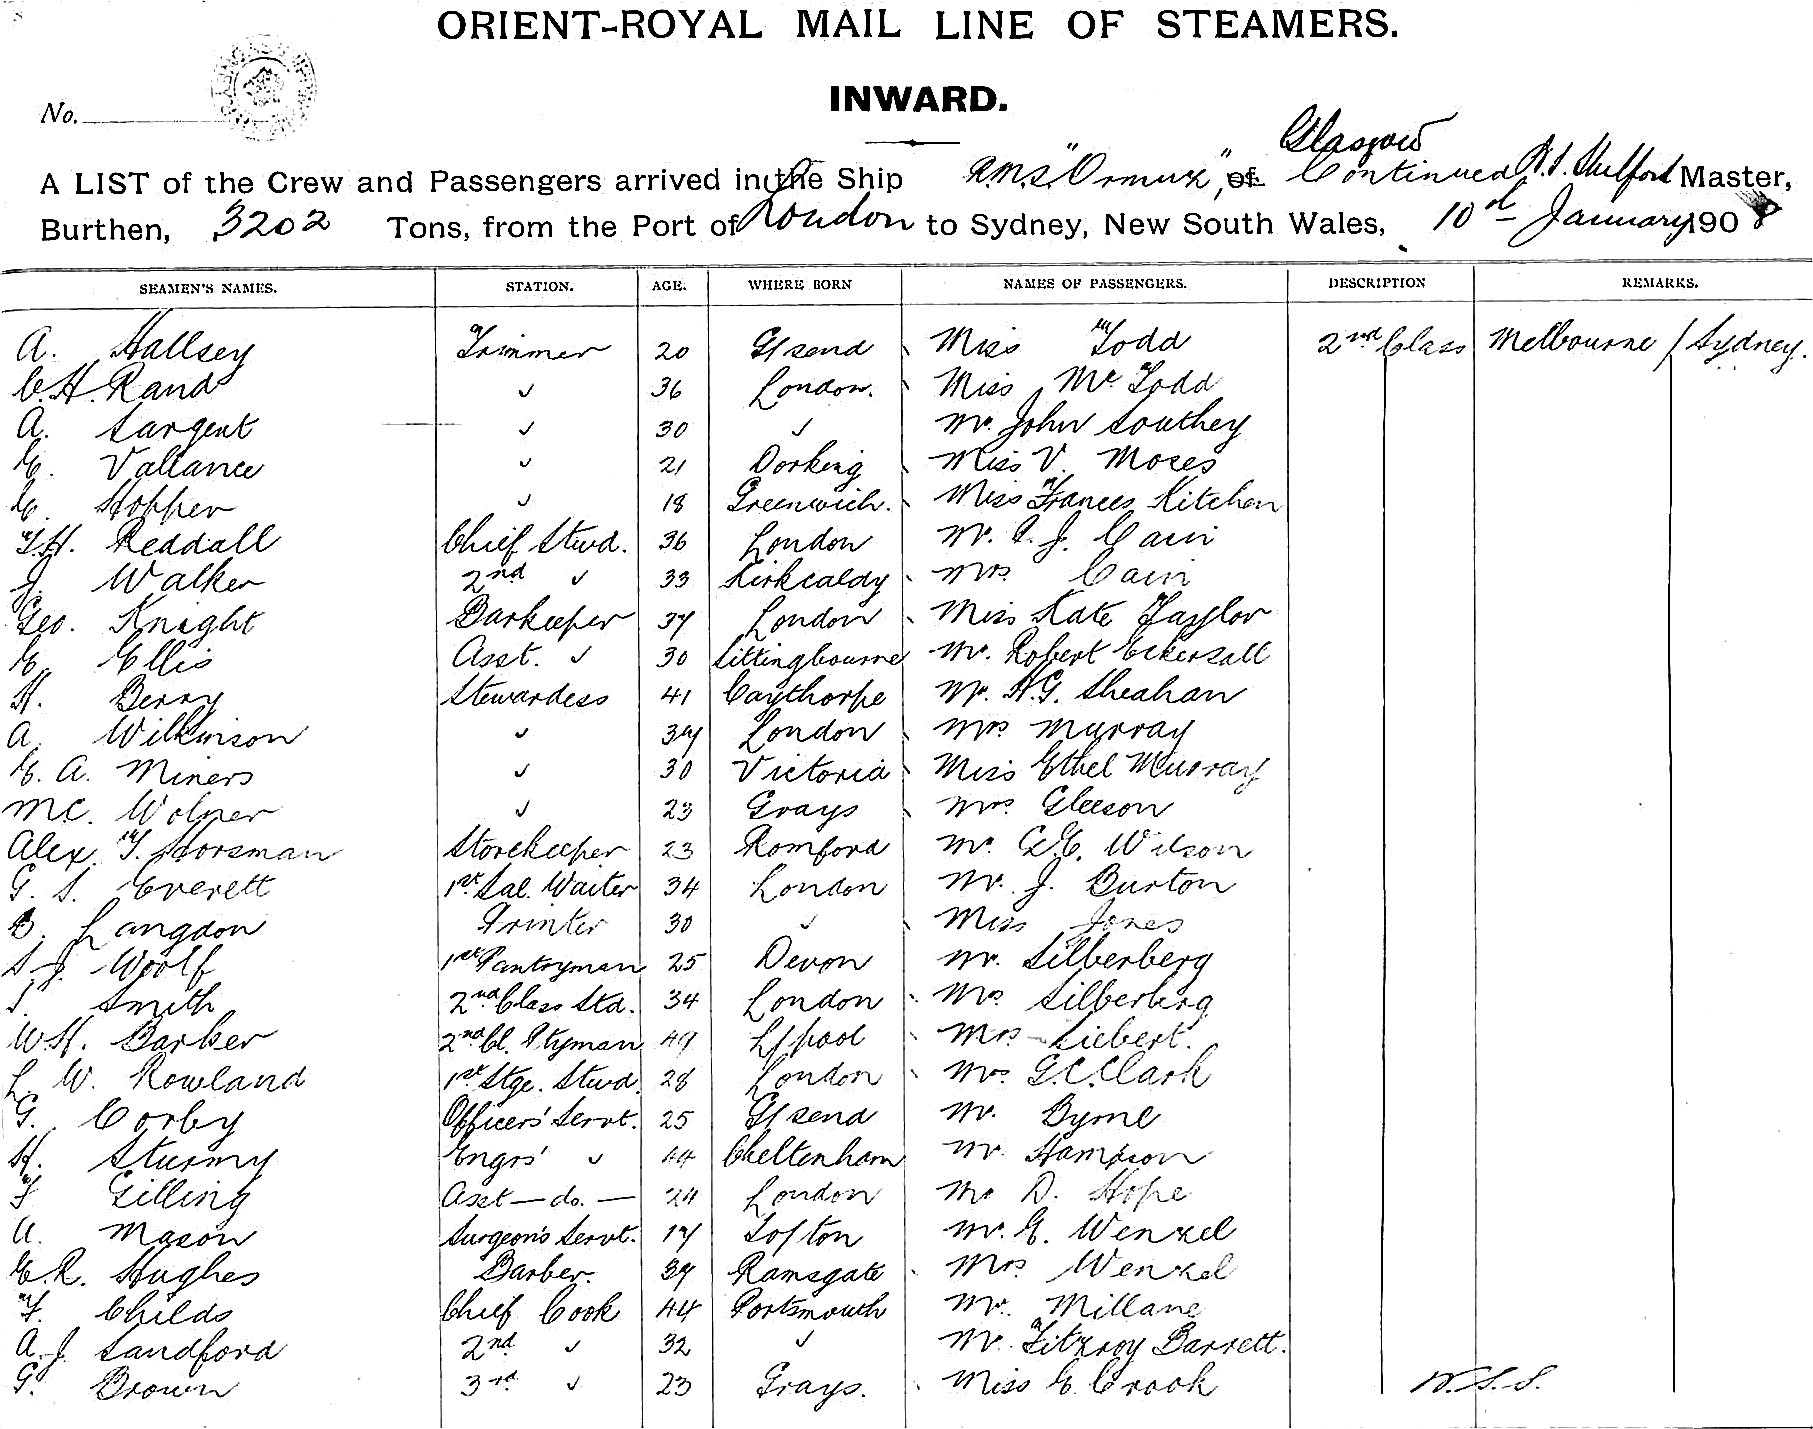 ORIENT-ROYAL MAIL LINE OF STEAMERS.
INWARD.
No.
Glasgow
A LIST of the Crew and Passengers arrived in the Ship R.M.S. "Ormuz", of Continued Master,
Burthen, 3202 Tons, from the Port of London to Sydney, New South Wales, 10th January 1908
SEAMEN'S NAMES. STATION. AGE. WHERE BORN NAMES OF PASSENGERS. DESCRIPTION REMARKS.
A. Hallsey Trimmer 20 G/send Miss Todd 2nd Class Melbourne / Sydney.
C.H. Rand ✓ 36 London. Miss Mc Todd
A. Sargent ✓ 30 ✓ Mr. John Southey
E. Vallance ✓ 21 Dorking Miss V. Moses
E. Hopper ✓ 18 Greenwich. Miss Frances Kitchen
T.H. Reddall Chief Stwd. 36 London Mr. P. J. Cain
J. Walker 2nd ✓ 33 Kirkcaldy Mrs Cain
Geo. Knight Barkeeper 37 London Miss Kate Taylor
E. Ellis Asst. ✓ 30 Sittingbourne Mr. Robert Eckersall
H. Berry Stewardess 41 Caythorpe Mr. H.G. Sheahan
A. Wilkinson ✓ 37 London Mrs Murray
E. A. Miners ✓ 30 Victoria Miss Ethel Murray
MC. Wolner ✓ 23 Grays Mrs Gleeson
Alex. T. Horsman Storekeeper 23 Romford Mr. Wilson
G. S. Everett 1st Sal. Waiter 34 London Mr. J. Burton
B. Langdon Printer 30 ✓ Miss Jones
S. J. Woolf 1st Pantryman 25 Devon Mr. Silberberg
S. Smith 2nd Class Std. 34 London Mrs Silberberg
W.H. Barker 2nd Cl. Ptyman 49 L/pool Mrs Siebert.
L. W. Rowland 1st Stge. Stwd. 28 London Mrs G.C. Clark
G. Corby Officers' Servt. 25 G/send Mr. Byrne
H. Sturmy Engrs' ✓ 44 Cheltenham Mr. Hampson
F. Gilling Asst — do. — 24 London Mr D. Hope
A. Mason Surgeon's Servt. 17 Lofton Mr. E. Wenzel
E.R. Hughes Barber. 39 Ramsgate Mrs Wenzel
F. Childs Chief Cook 44 Portsmouth Mr. Millane
A. J. Sandford 2nd ✓ 32 ✓ Mr. Fitzroy Barrett.
G. Brown 3rd ✓ 23 Grays. Miss E. Crook